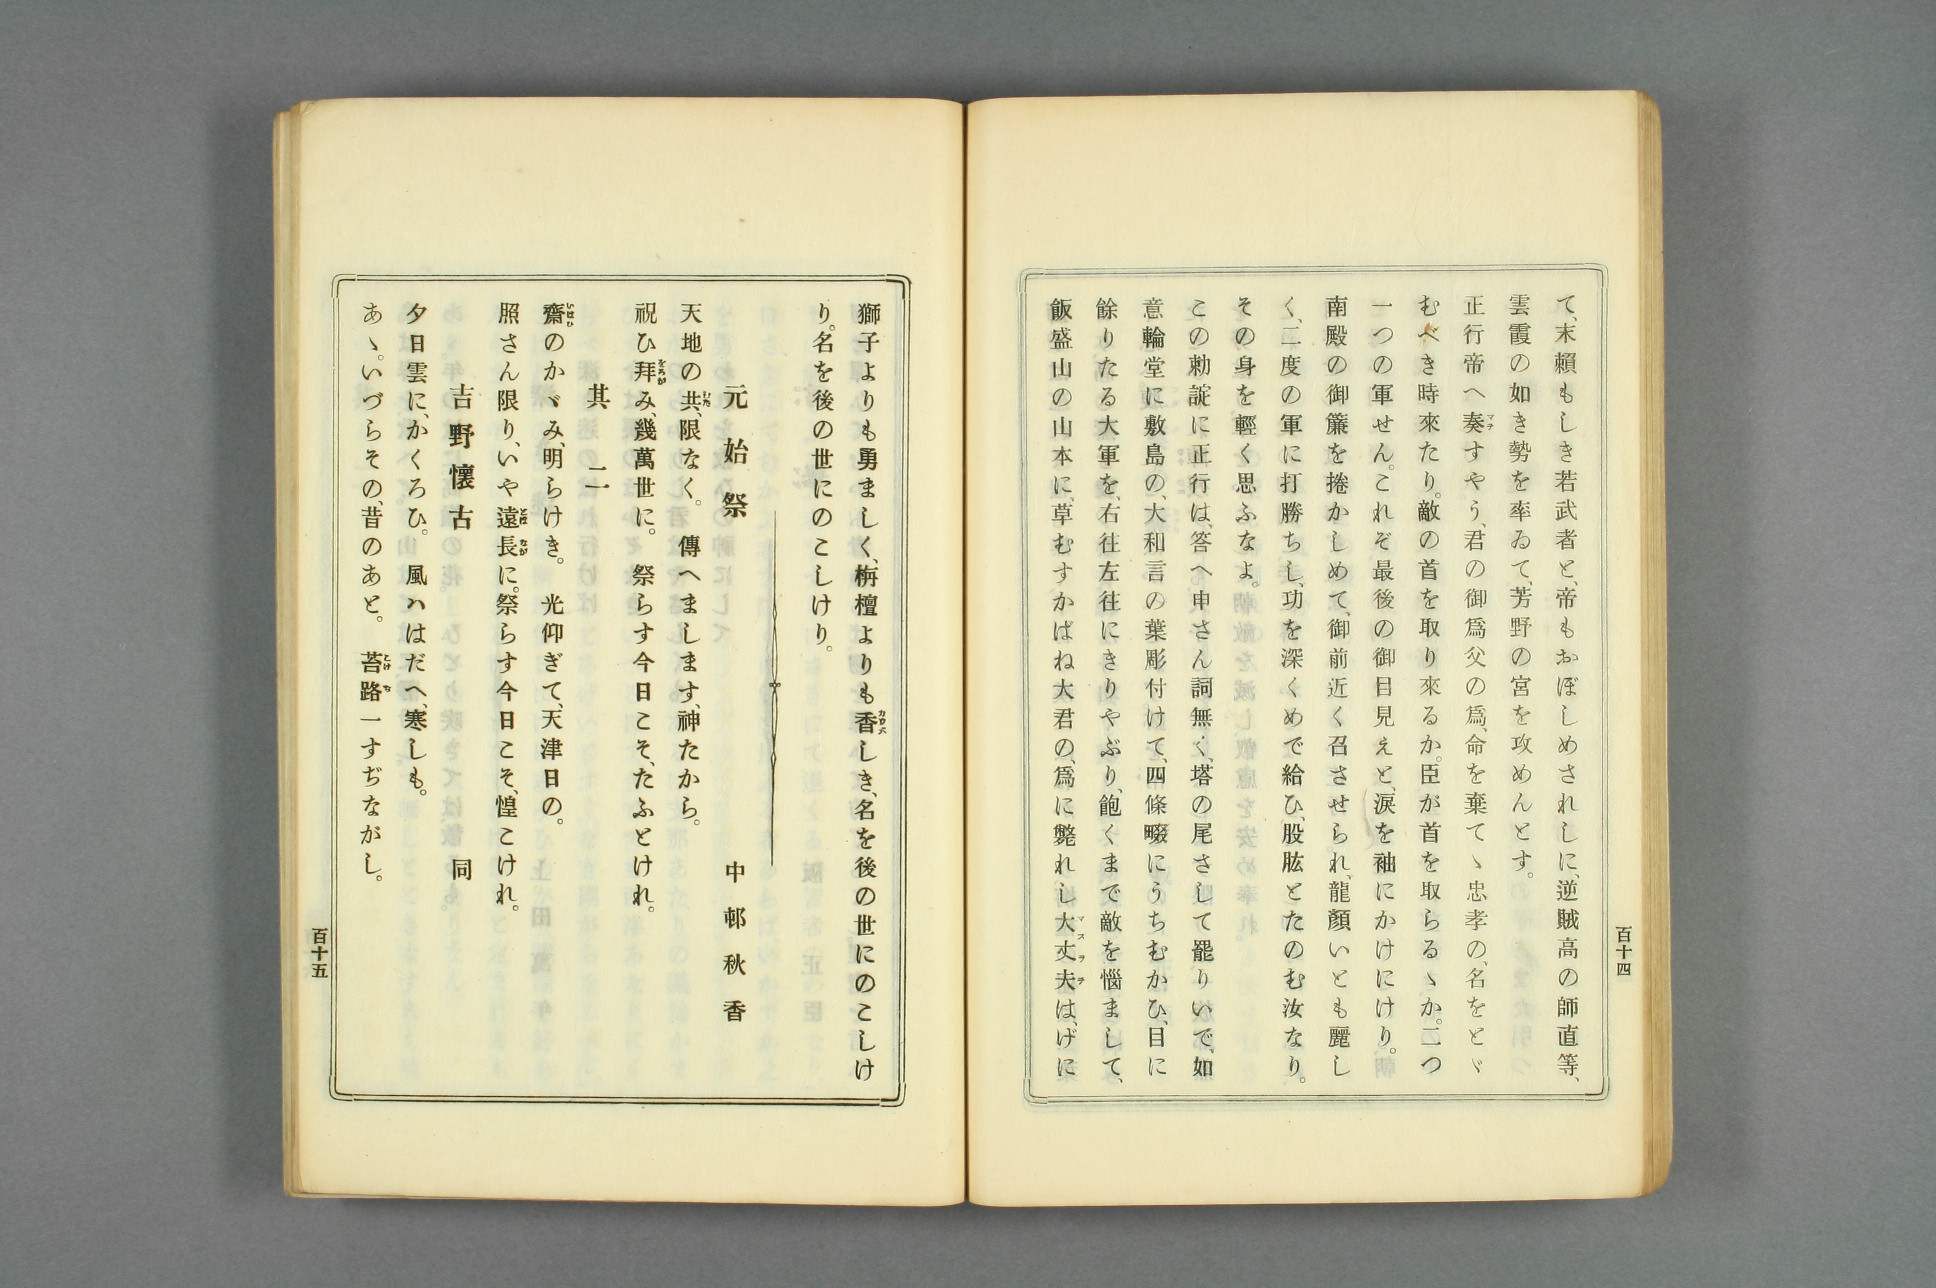 て、末頼もしき若武者と、帝もおぼしめされしに、逆賊高の師直等、
雲霞の如き勢を率ゐて、芳野の宮を攻めんとす。
正行帝へ奏すやう、君の御爲父の爲、命を棄てゝ忠孝の、名をとゞ
むべき時來たり。敵の首を取り來るか。臣が首を取らるゝか。二つ
一つの軍せん。これぞ最後の御目見えと、涙を袖にかけにけり。
南殿の御簾を捲かしめて、御前近く召させられ、龍顏いとも麗し
く、二度の軍に打勝ちし、功を深くめで給ひ、股肱とたのむ汝なり。
その身を輕く思ふなよ。
この勅諚に正行は、答へ申さん詞無く、塔の尾さして罷りいで、如
意輪堂に敷島の、大和言の葉彫付けて、四條畷にうちむかひ、目に
餘りたる大軍を、右往左往にきりやぶり、飽くまで敵を惱まして、
飯盛山の山本に、草むすかばね大君の、爲に斃れし大丈夫は、げに
百十四
獅子よりも勇ましく、栴檀よりも香しき、名を後の世にのこしけ
り。名を後の世にのこしけり。
元始祭 中邨秋香
天地の共、限なく。傳へまします、神たから。
祝ひ拜み、幾萬世に。祭らす今日こそ、たふとけれ。
其二
齋のかゞみ、明らけき。光仰ぎて、天津日の。
照さん限り、いや遠長に。祭らす今日こそ、惶こけれ。
吉野懷古 同
夕日雲に、かくろひ。風ハはだへ、寒しも。
あゝ。いづらその、昔のあと。苔路一すぢながし。
百十五